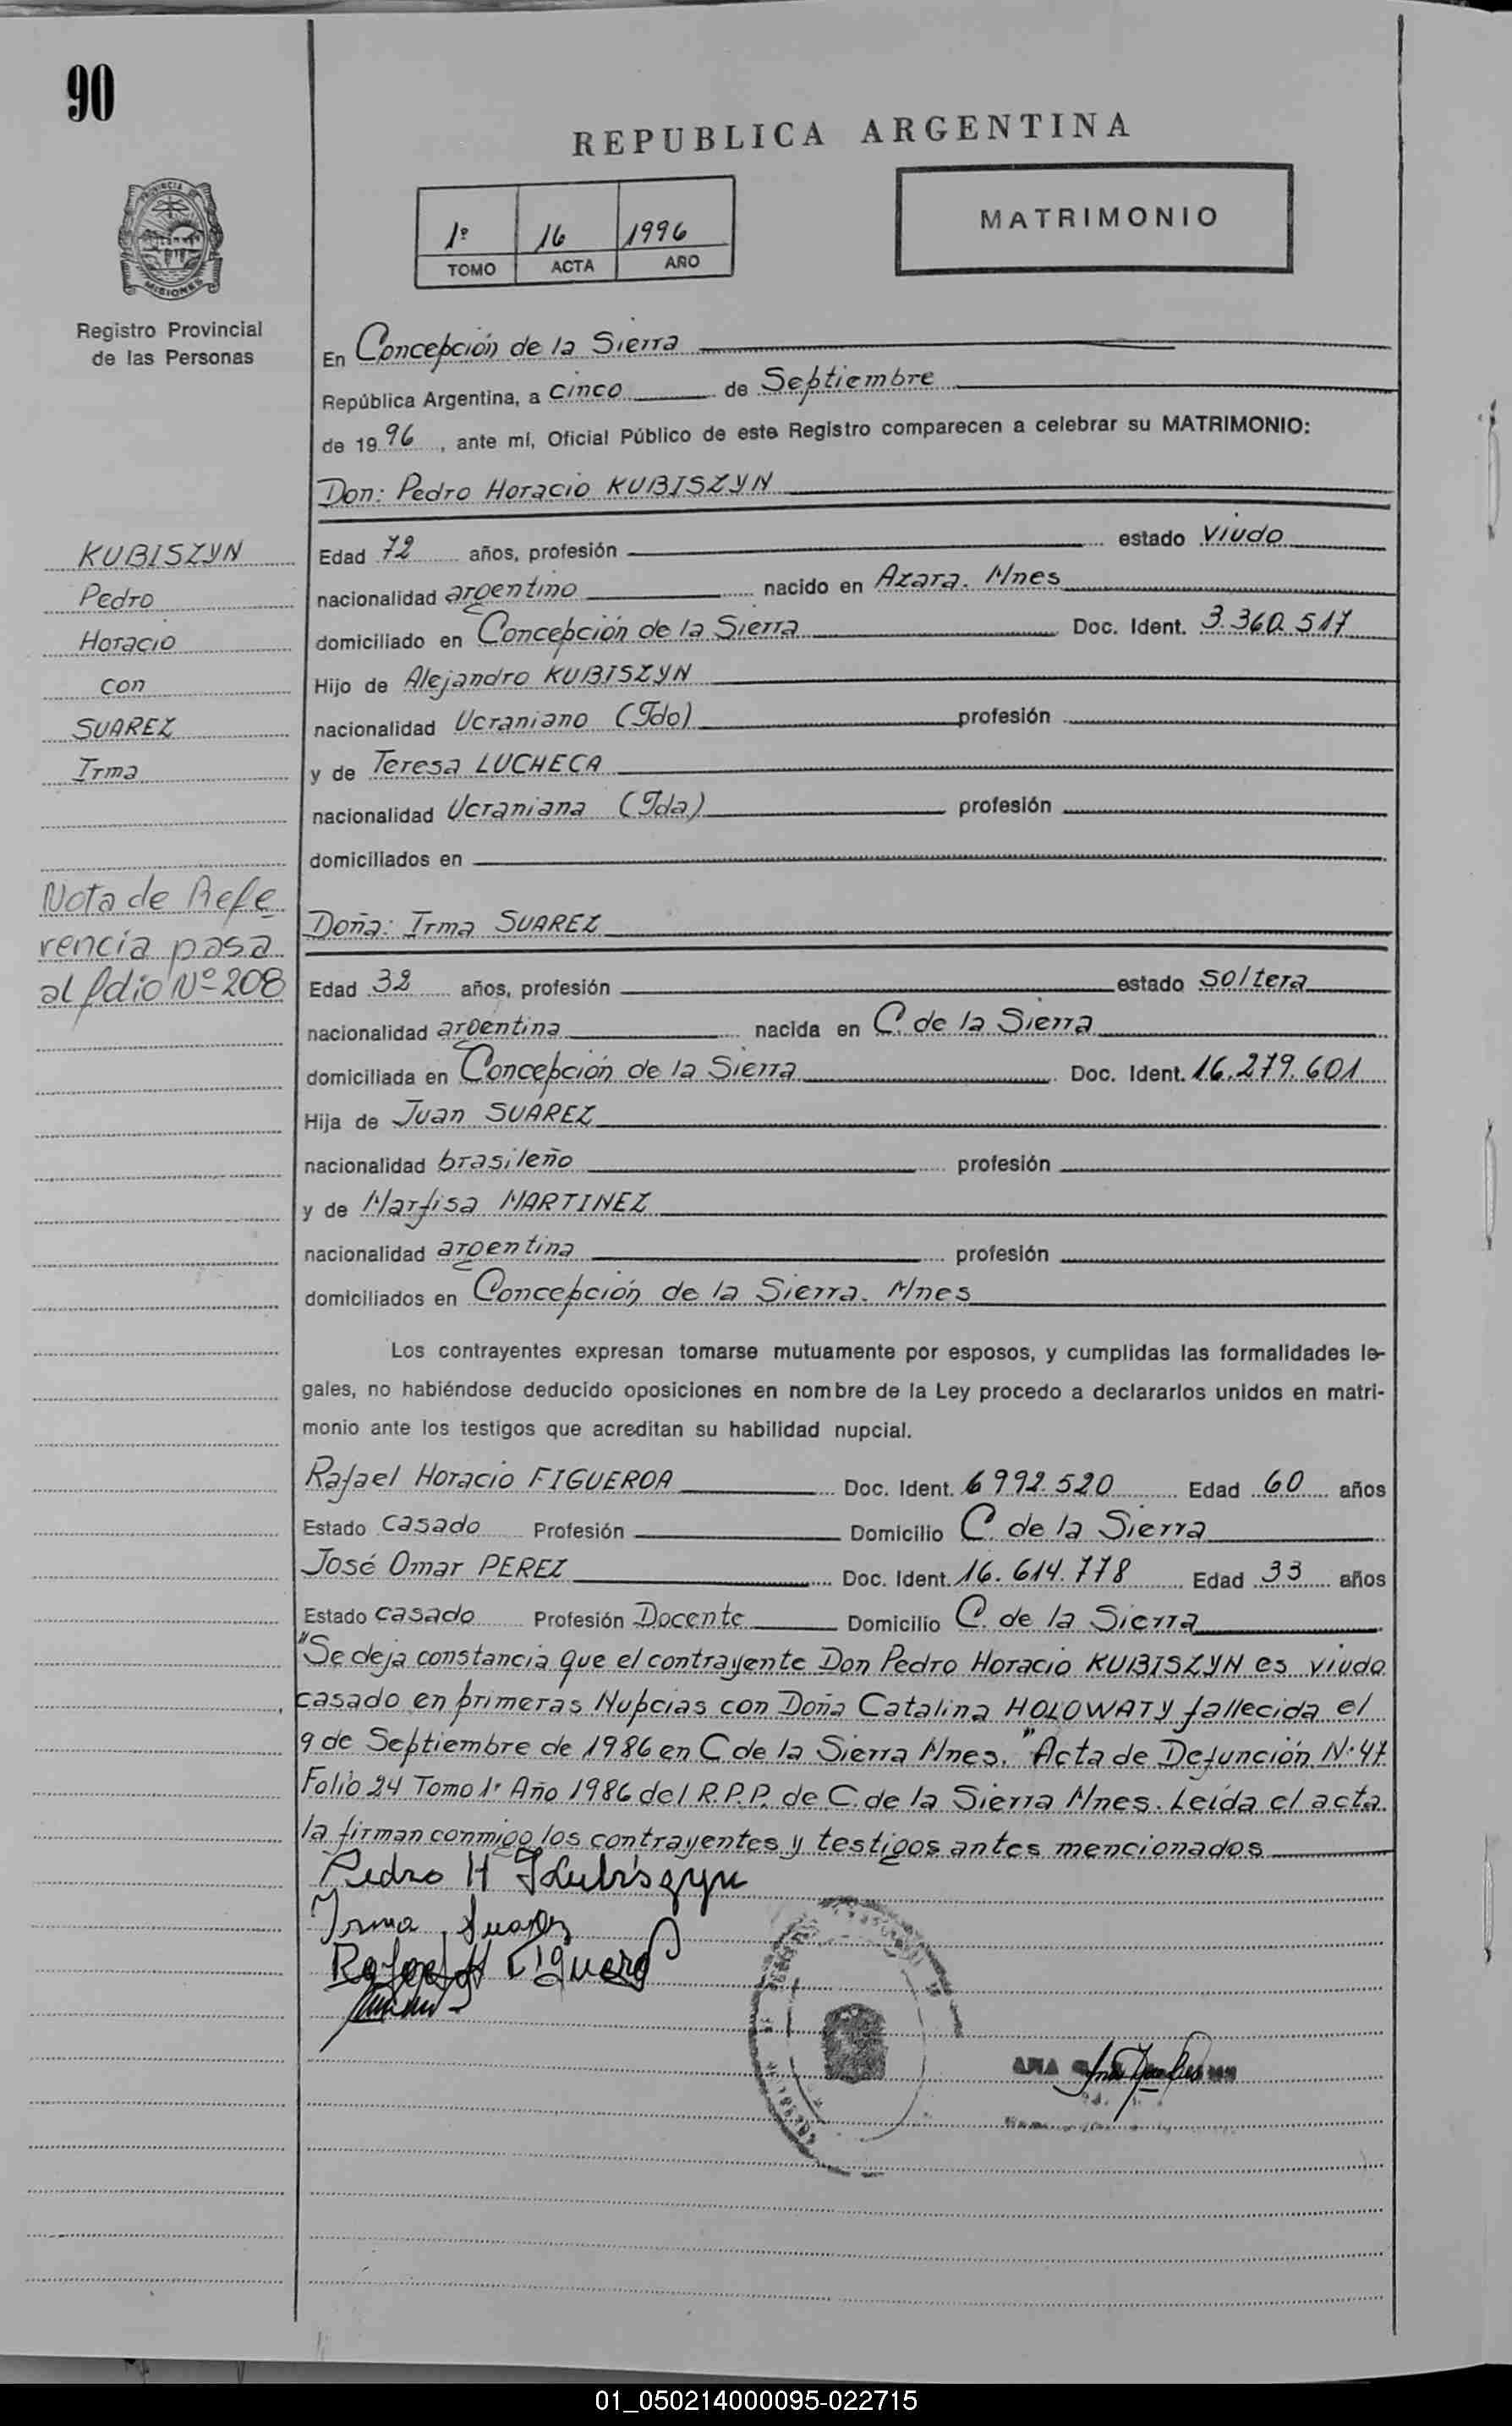 90
REPUBLICA ARGENTINA
1º 16 1996
TOMO ACTA AÑO
MATRIMONIO
PROVINCIA DE
MISIONES
Registro Provincial
de las Personas
En Concepción de la Sierra
República Argentina, a cinco de Septiembre
de 1996, ante mí, Oficial Público de este Registro comparecen a celebrar su MATRIMONIO:
Don: Pedro Horacio KUBISZYN
KUBISZYN
Pedro
Horacio
con
SUAREZ
Irma
Edad 72 años, profesión estado viudo
nacionalidad argentino nacido en Azara. Mnes
domiciliado en Concepción de la Sierra Doc. Ident. 3.360.517
Hijo de Alejandro KUBISZYN
nacionalidad Ucraniano (Fdo) profesión
y de Teresa LUCHECA
nacionalidad Ucraniana (Fda) profesión
domiciliados en
Nota de Refe
rencia pasa
al folio Nº 208
Doña: Irma SUAREZ
Edad 32 años, profesión estado soltera
nacionalidad argentina nacida en C. de la Sierra
domiciliada en Concepción de la Sierra Doc. Ident. 16.279.601
Hija de Juan SUAREZ
nacionalidad brasileño profesión
y de Marfisa MARTINEZ
nacionalidad argentina profesión
domiciliados en Concepción de la Sierra. Mnes
Los contrayentes expresan tomarse mutuamente por esposos, y cumplidas las formalidades le-
gales, no habiéndose deducido oposiciones en nombre de la Ley procedo a declararlos unidos en matri-
monio ante los testigos que acreditan su habilidad nupcial.
Rafael Horacio FIGUEROA Doc. Ident. 6992.520 Edad 60 años
Estado casado Profesión Domicilio C. de la Sierra
José Omar PEREZ Doc. Ident. 16.614.778 Edad 33 años
Estado casado Profesión Docente Domicilio C. de la Sierra
"Se deja constancia que el contrayente Don Pedro Horacio KUBISZYN es viudo
casado en primeras Nupcias con Doña Catalina HOLOWATY fallecida el
9 de Septiembre de 1986 en C de la Sierra Mnes." Acta de Defunción N· 47
Folio 24 Tomo 1º Año 1986 del R.P.P. de C. de la Sierra Mnes. Leída el acta
la firman conmigo los contrayentes y testigos antes mencionados
Pedro H Kubiszyn
Irma Suarez
Rafael H Figueroa
ANA
01_050214000095-022715